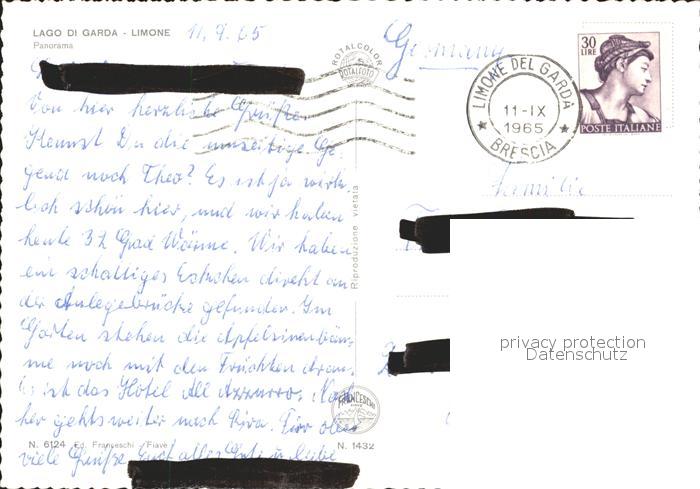 LAGO DI GARDA - LIMONE
Panorama
11.9.65
ROTALCOLOR
ROTALFOTO
Germany
LIMONE DEL GARDA
11-IX
1965
BRESCIA
30
LIRE
POSTE ITALIANE
Von hier herzliche Grüße.
Kennst Du die umseitige Ge-
gend noch Theo? Es ist ja wirk-
lich schön hier, und wir haben
heute 32 Grad Wärme. Wir haben
ein schattiges Eckchen direkt an
der Anlegebrücke gefunden. Im
Garten stehen die Apfelsinenbäu-
me noch mit den Früchten dran.
Es ist das Hotel All Azzurro. Nach-
her gehts weiter nach Riva. Für
viele Grüße Euch alles Gute u. liebe
Familie
Riproduzione vietata
FRANCESCHI
N. 6124 Ed. Franceschi (Fiavè)
N. 1432
privacy protection
Datenschutz